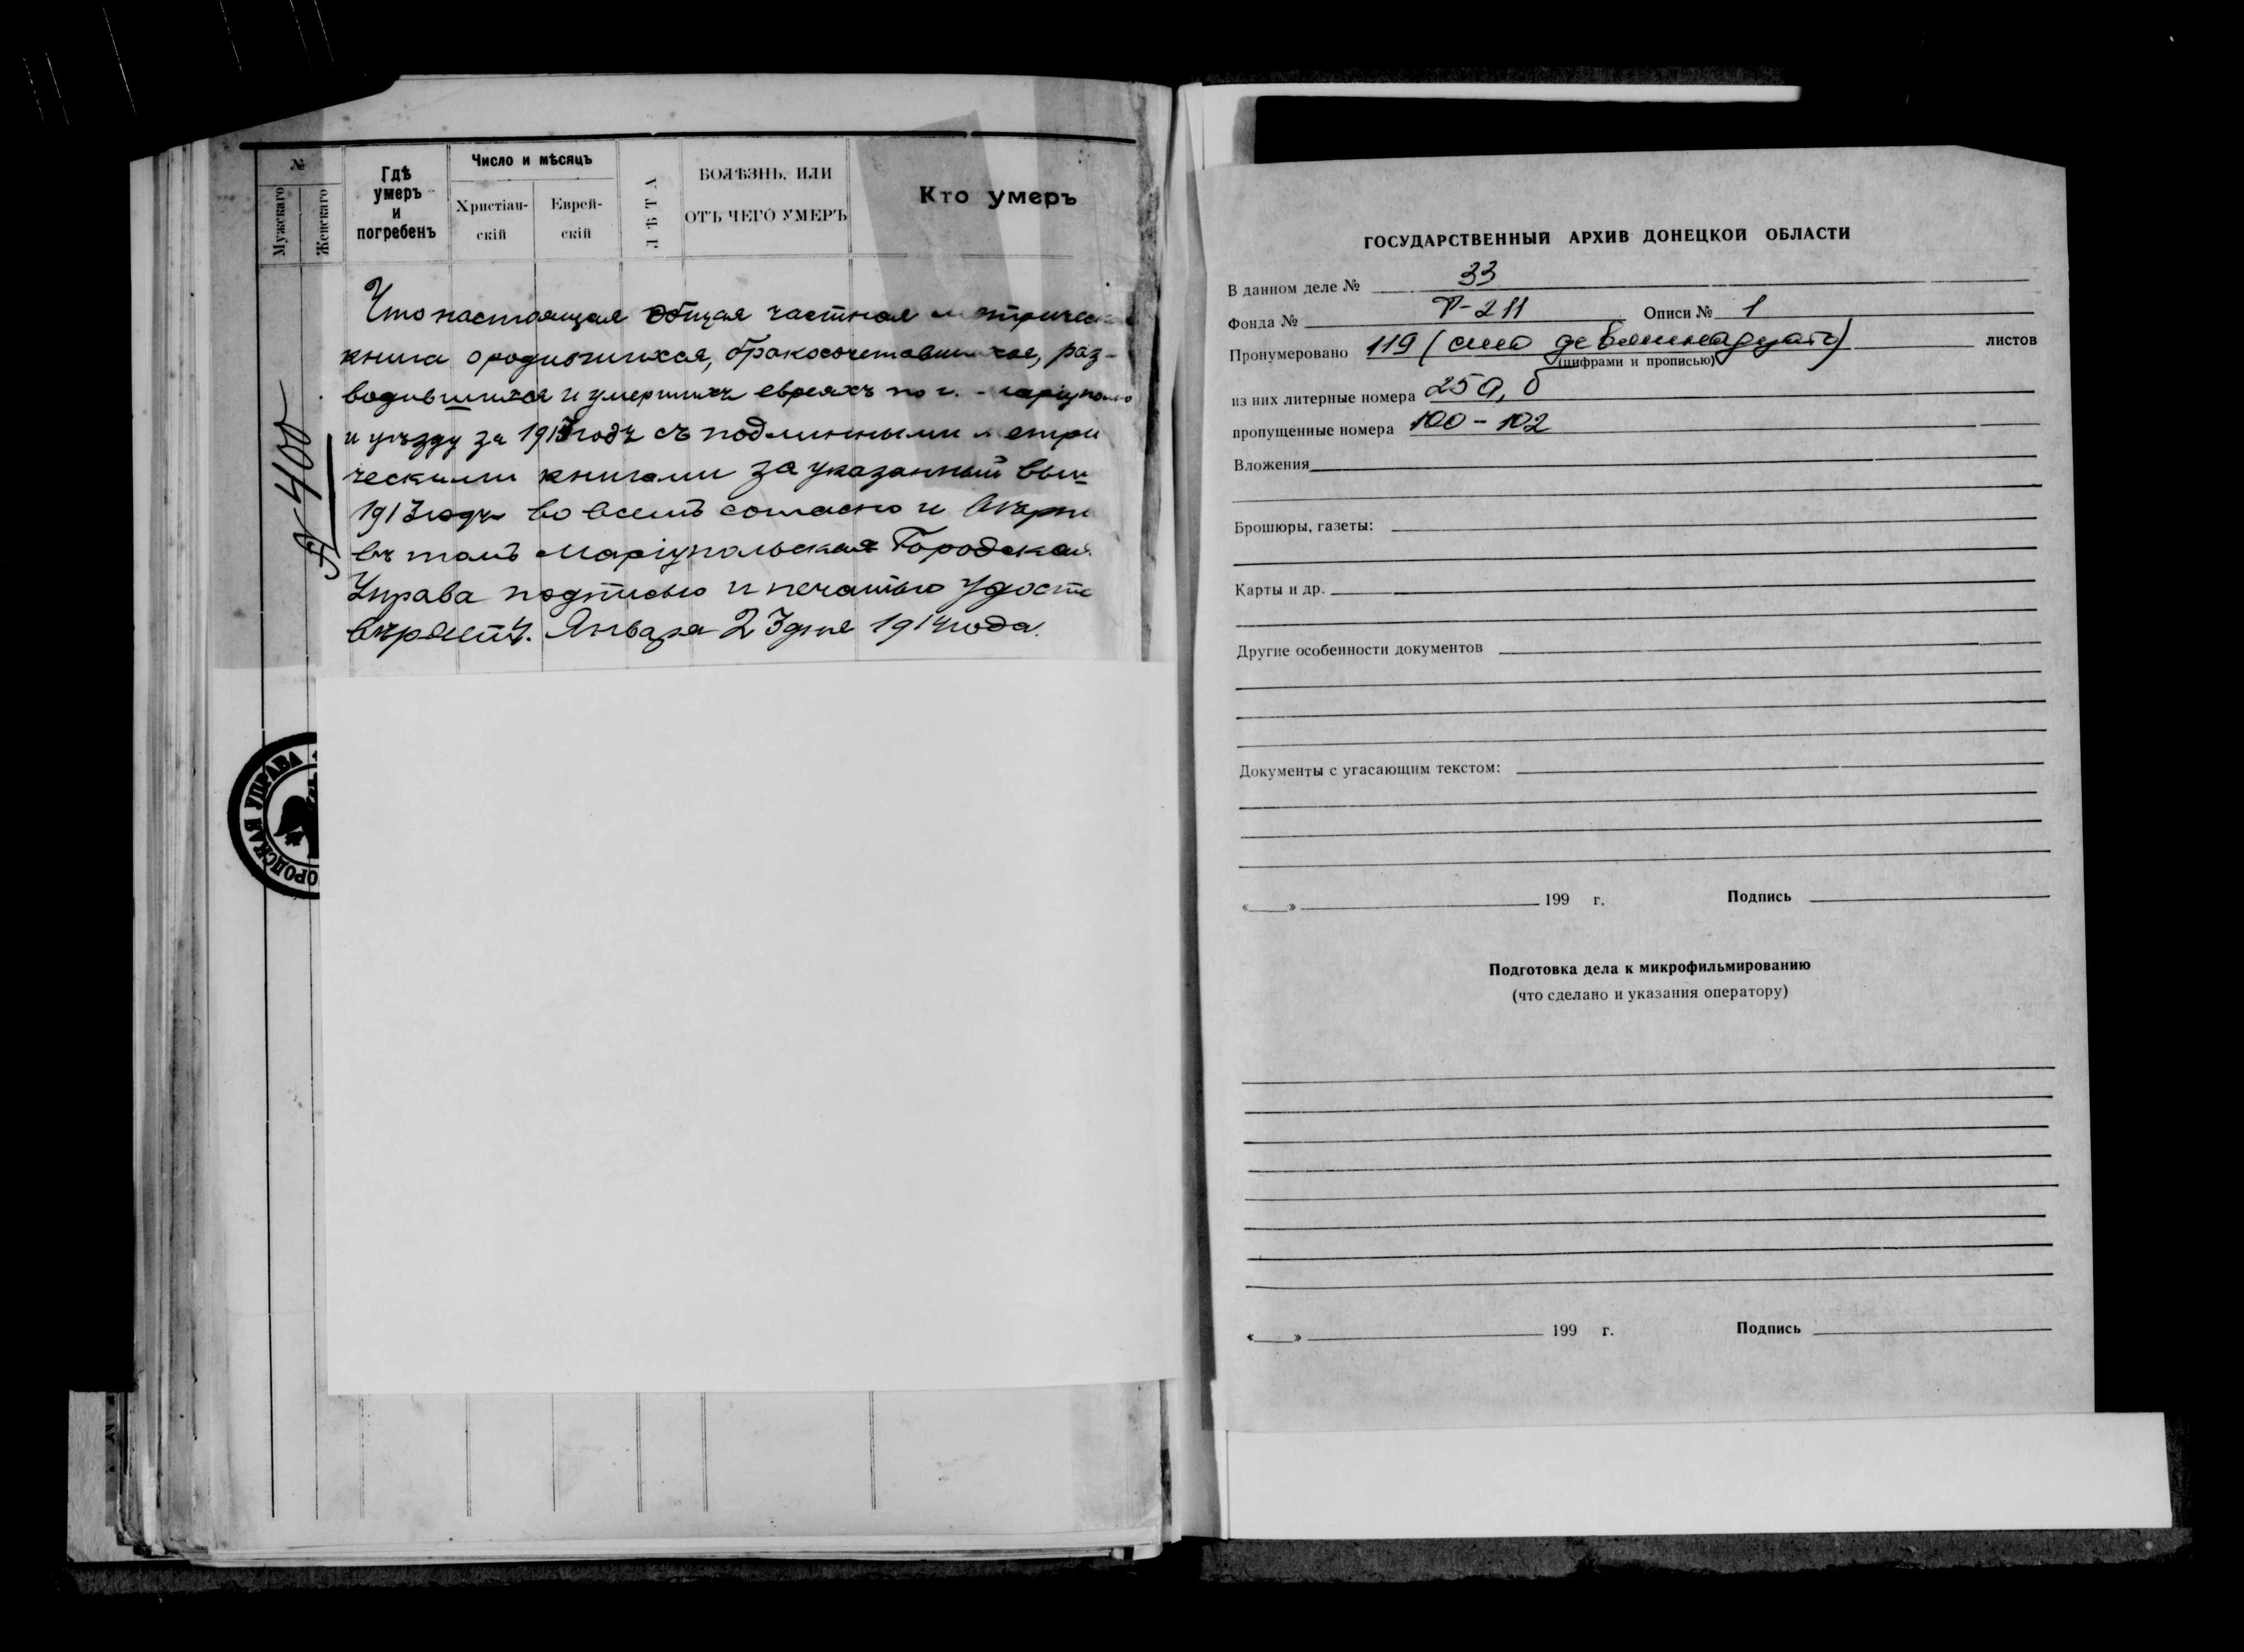 №
Мужскаго
Женскаго
Гдѣ умеръ и погребенъ
Число и мѣсяцъ
Христіан-
скій
Еврей-
скій
ЛѢТА
БОЛѢЗНЬ, ИЛИ
ОТЪ ЧЕГО УМЕРЪ
Кто умеръ
Что настоящая общая частная
книга о родившихся, бракосочетавшихся, раз-
водившихся и умершихъ евреяхъ по г.
и уѣзду за 1913 годъ съ подлинными метри
ческими книгами за указанный выш
1913 годъ во всемъ согласно и вѣрно
въ томъ Маріупольская Городская
Управа подписью и печатью удосто
вѣряетъ. Января 23 дня 1914 года.
№ 400
ОРОДСКАЯ УПРАВА
ГОСУДАРСТВЕННЫЙ АРХИВ ДОНЕЦКОЙ ОБЛАСТИ
В данном деле № 33
Фонда № Р-211 Описи № 1
Пронумеровано 119 (сто девятнадцать) листов
(цифрами и прописью)
из них литерные номера 25а, б
пропущенные номера 100-102
Вложения
Брошюры, газеты:
Карты и др.
Другие особенности документов
Документы с угасающим текстом:
« » 199 г. Подпись
Подготовка дела к микрофильмированию
(что сделано и указания оператору)
« » 199 г. Подпись